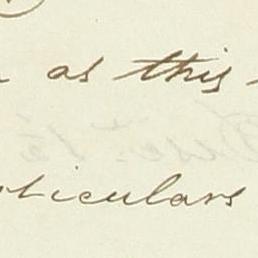 as this
ticulars